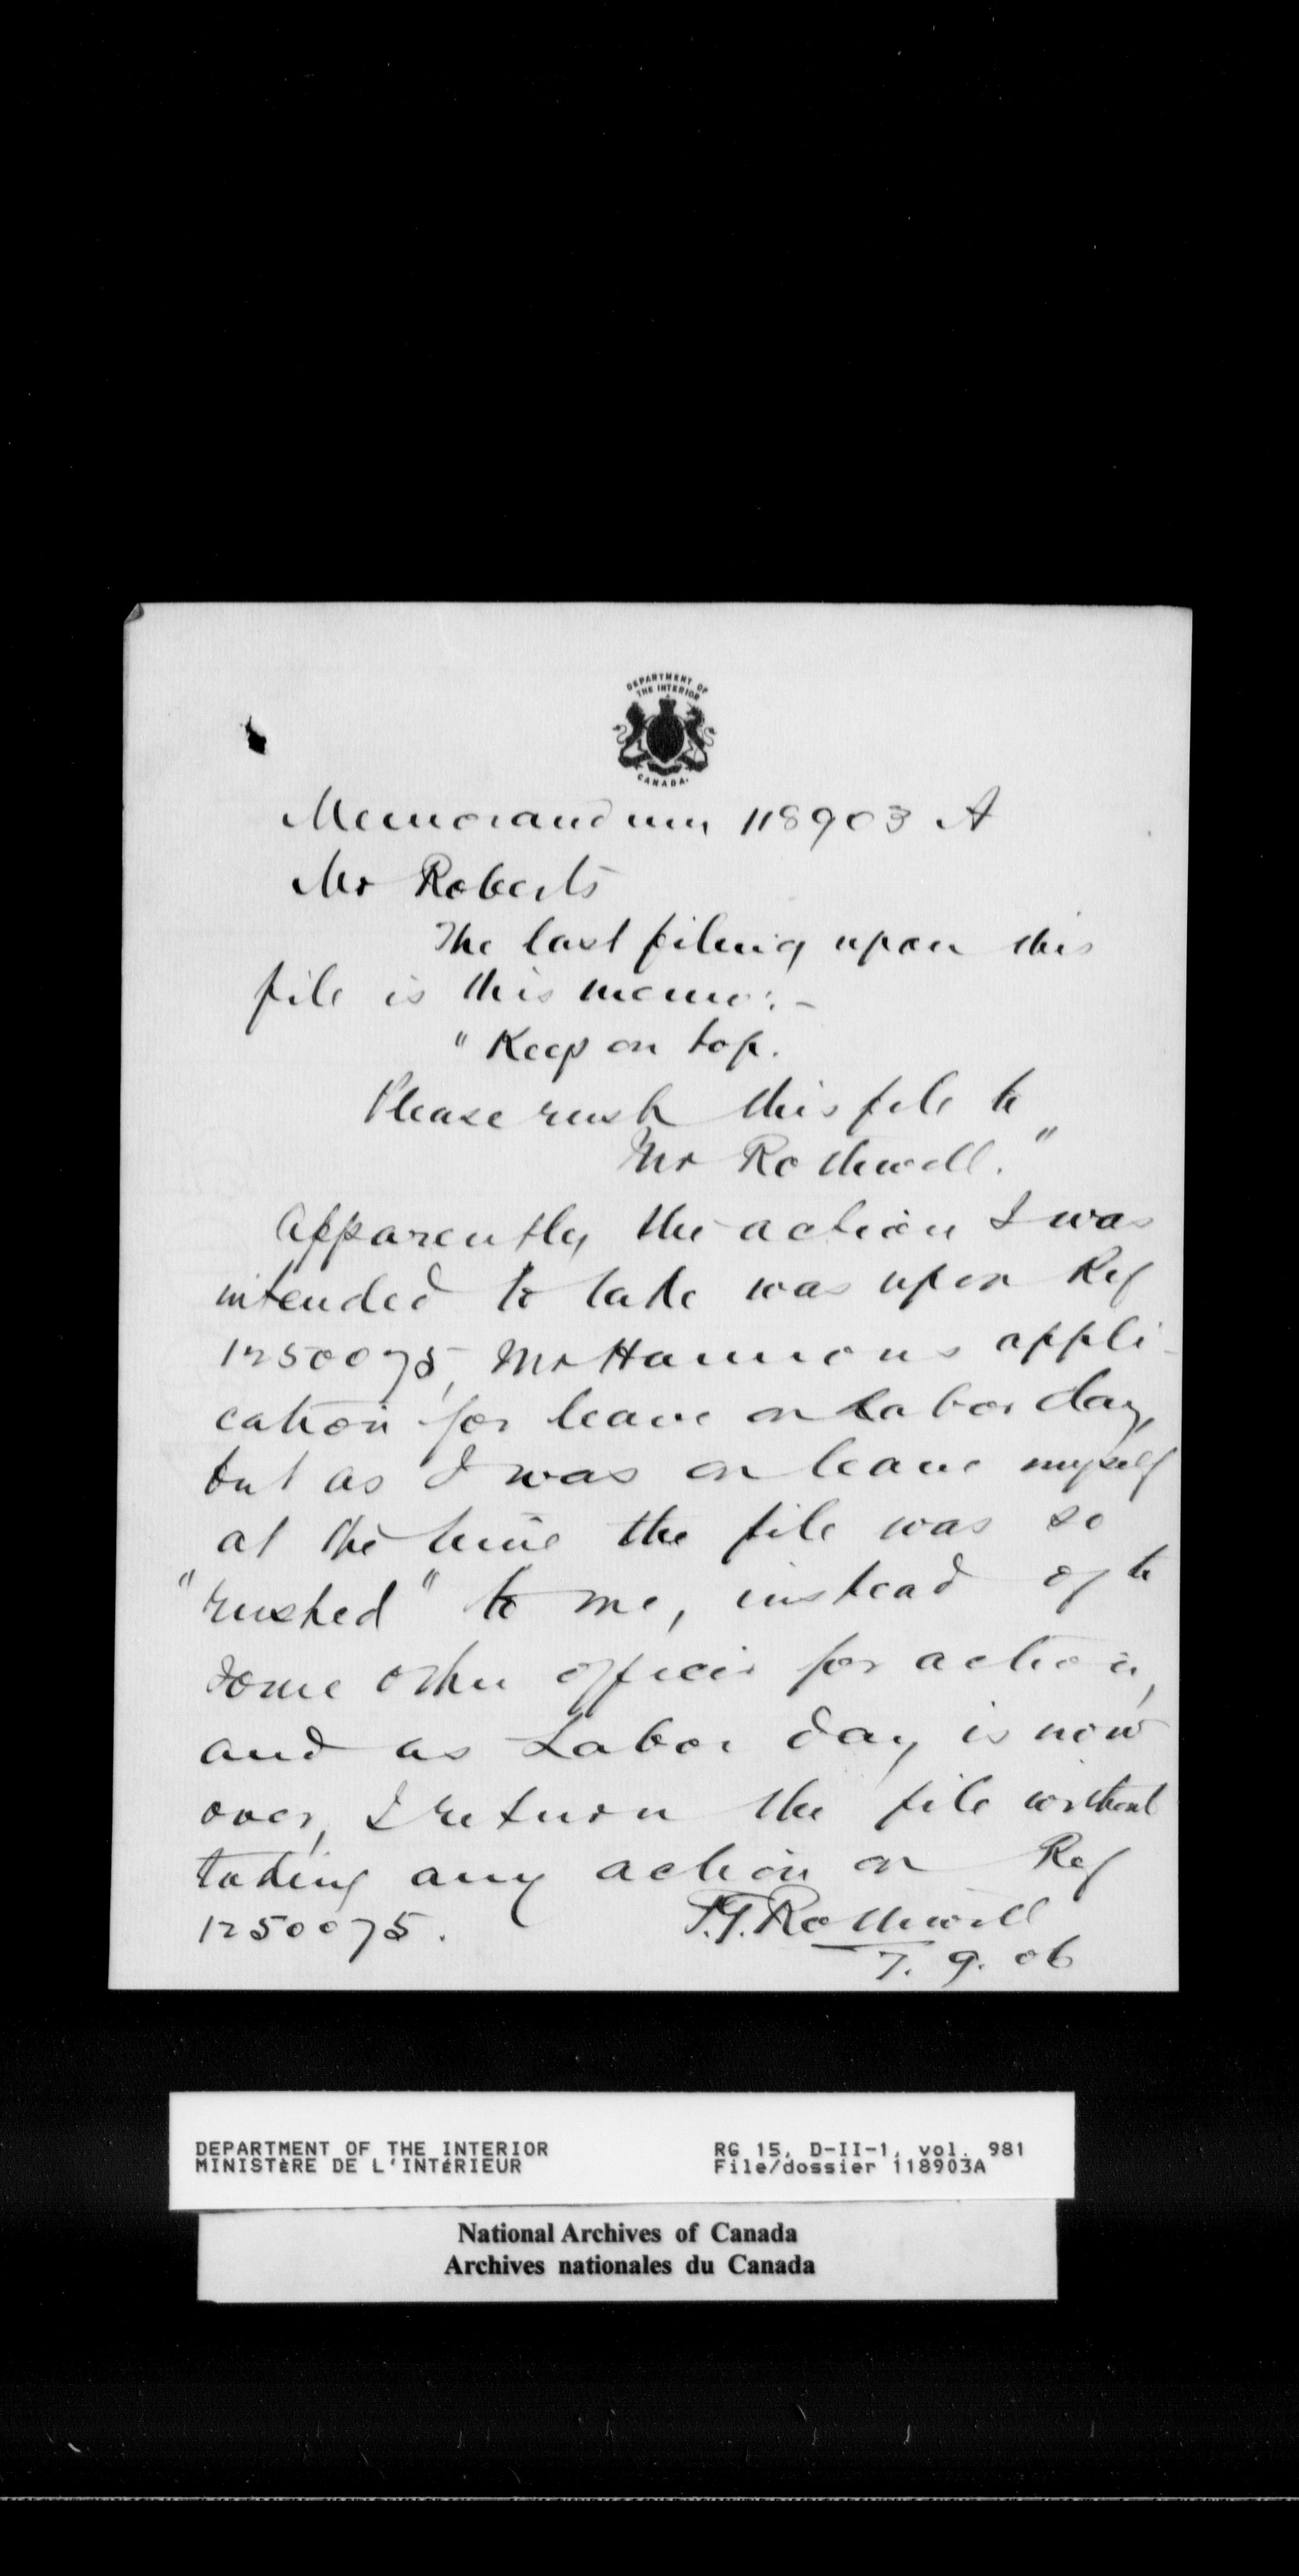 DEPARTMENT OF
THE INTERIOR
CANADA.
Memorandum 118903 A
Mr Roberts
The last filing upon this
file is this memo:-
"Keep on top.
Please rush this file to
Mr Rothwell."
Apparently the action I was
intended to take was upon Ref
1250075, Mr Hannons appli-
cation for leave on Labor day,
but as I was on leave myself
at the time the file was so
"rushed" to me, instead of to
some other officer for action,
and as Labor day is now
over, I return the file without
taking any action on Ref
1250075. T.G. Rothwell
7. 9. 06
DEPARTMENT OF THE INTERIOR RG 15, D-II-1, vol. 981
MINISTÈRE DE L'INTÉRIEUR File/dossier 118903A
National Archives of Canada
Archives nationales du Canada